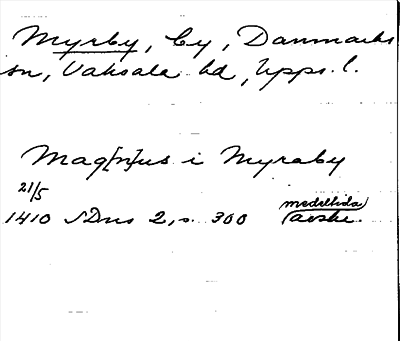 Myrby, by, Danmarks
sn, Vaksala hd, Upps. l.
Mag[n]us i Myraby
21/5
1410 SDns 2, s. 300 medeltida
avskr.